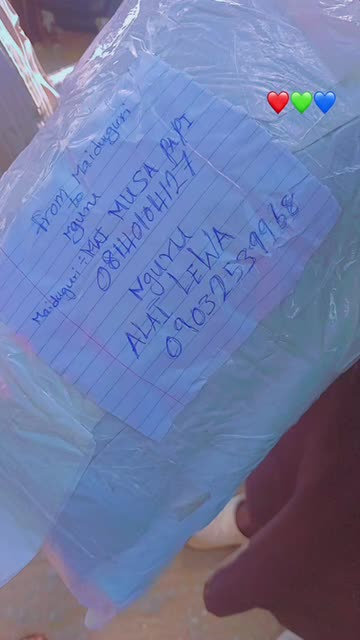 From Maiduguri
to
nguru
Maiduguri = MAT MUSA PAPI
08140104127
Nguru
ALAT LEWA
09032539968